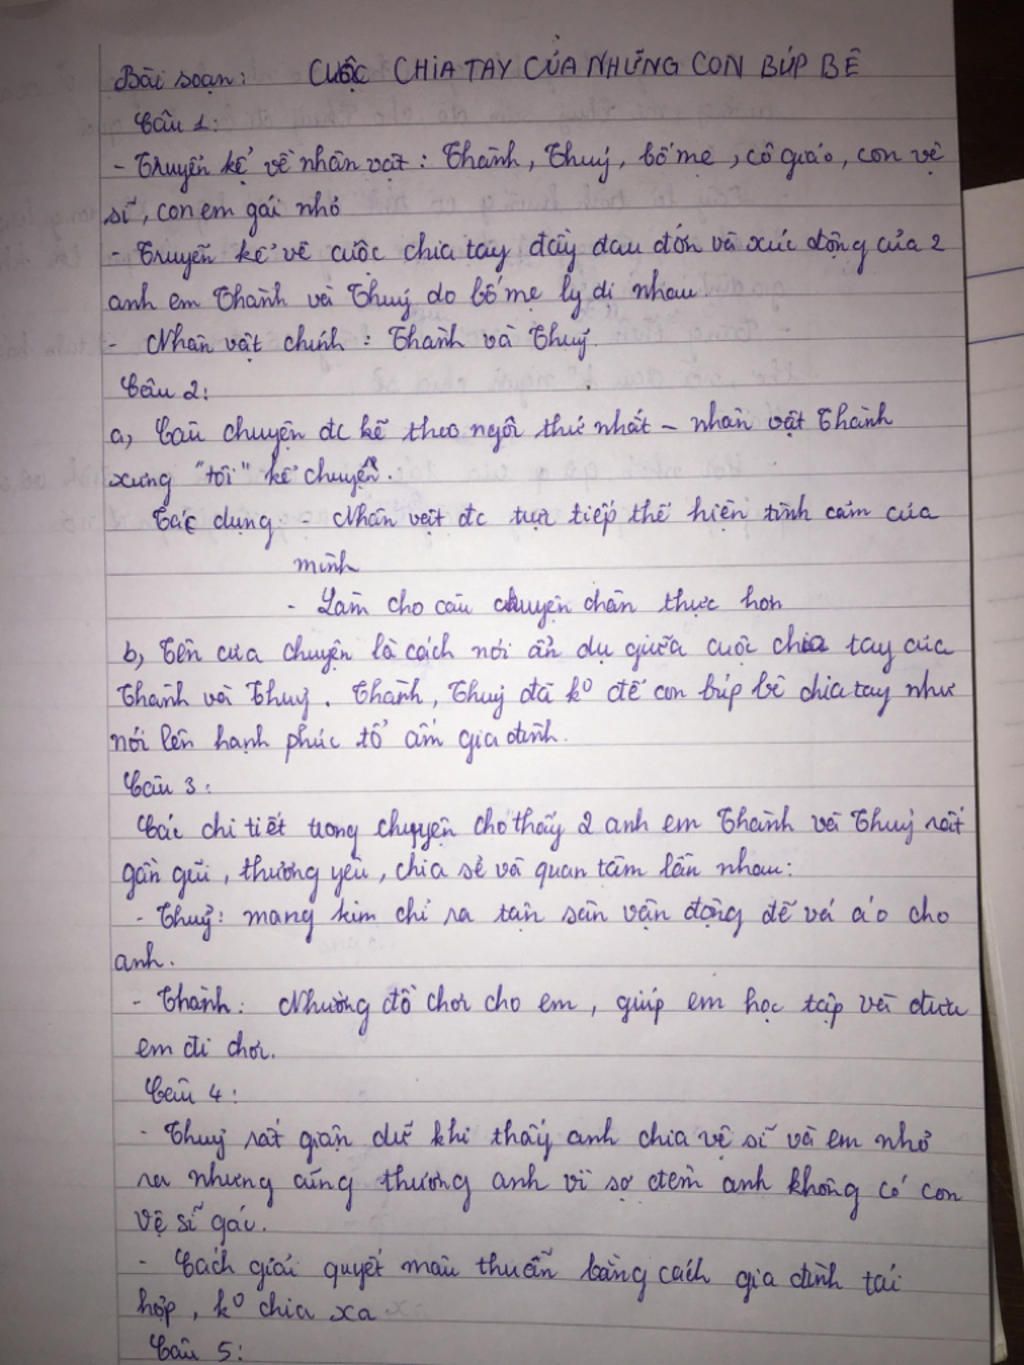 Bài soạn: CUỘC CHIA TAY CỦA NHỮNG CON BÚP BÊ
Câu 1:
- Truyện kể về nhân vật : Thành, Thuỷ, bố mẹ, cô giáo, con vệ
sĩ, con em gái nhỏ
- Truyện kể về cuộc chia tay đầy đau đớn và xúc động của 2
anh em Thành và Thuỷ do bố mẹ ly dị nhau.
- Nhân vật chính : Thành và Thuỷ.
Câu 2:
a, Câu chuyện đc kể theo ngôi thứ nhất - nhân vật Thành
xưng "tôi" kể chuyện.
Tác dụng - Nhân vật đc trực tiếp thể hiện tình cảm của
mình
- Làm cho câu chuyện chân thực hơn
b, Tên của chuyện là cách nói ẩn dụ giữa cuộc chia tay của
Thành và Thuỷ. Thành, Thuỷ đã k⁰ để con búp bê chia tay như
nói lên hạnh phúc tổ ấm gia đình.
Câu 3:
Các chi tiết trong chuyện cho thấy 2 anh em Thành và Thuỷ rất
gần gũi, thương yêu, chia sẻ và quan tâm lẫn nhau:
- Thuỷ: mang kim chỉ ra tận sân vận động để vá áo cho
anh.
- Thành: Nhường đồ chơi cho em, giúp em học tập và đưa
em đi chơi.
Câu 4:
- Thuỷ rất giận dữ khi thấy anh chia vệ sĩ và em nhỏ
ra nhưng cũng thương anh vì sợ đêm anh không có con
vệ sĩ gác.
- Cách giải quyết mâu thuẫn bằng cách gia đình tái
hợp, k⁰ chia xa
Câu 5: